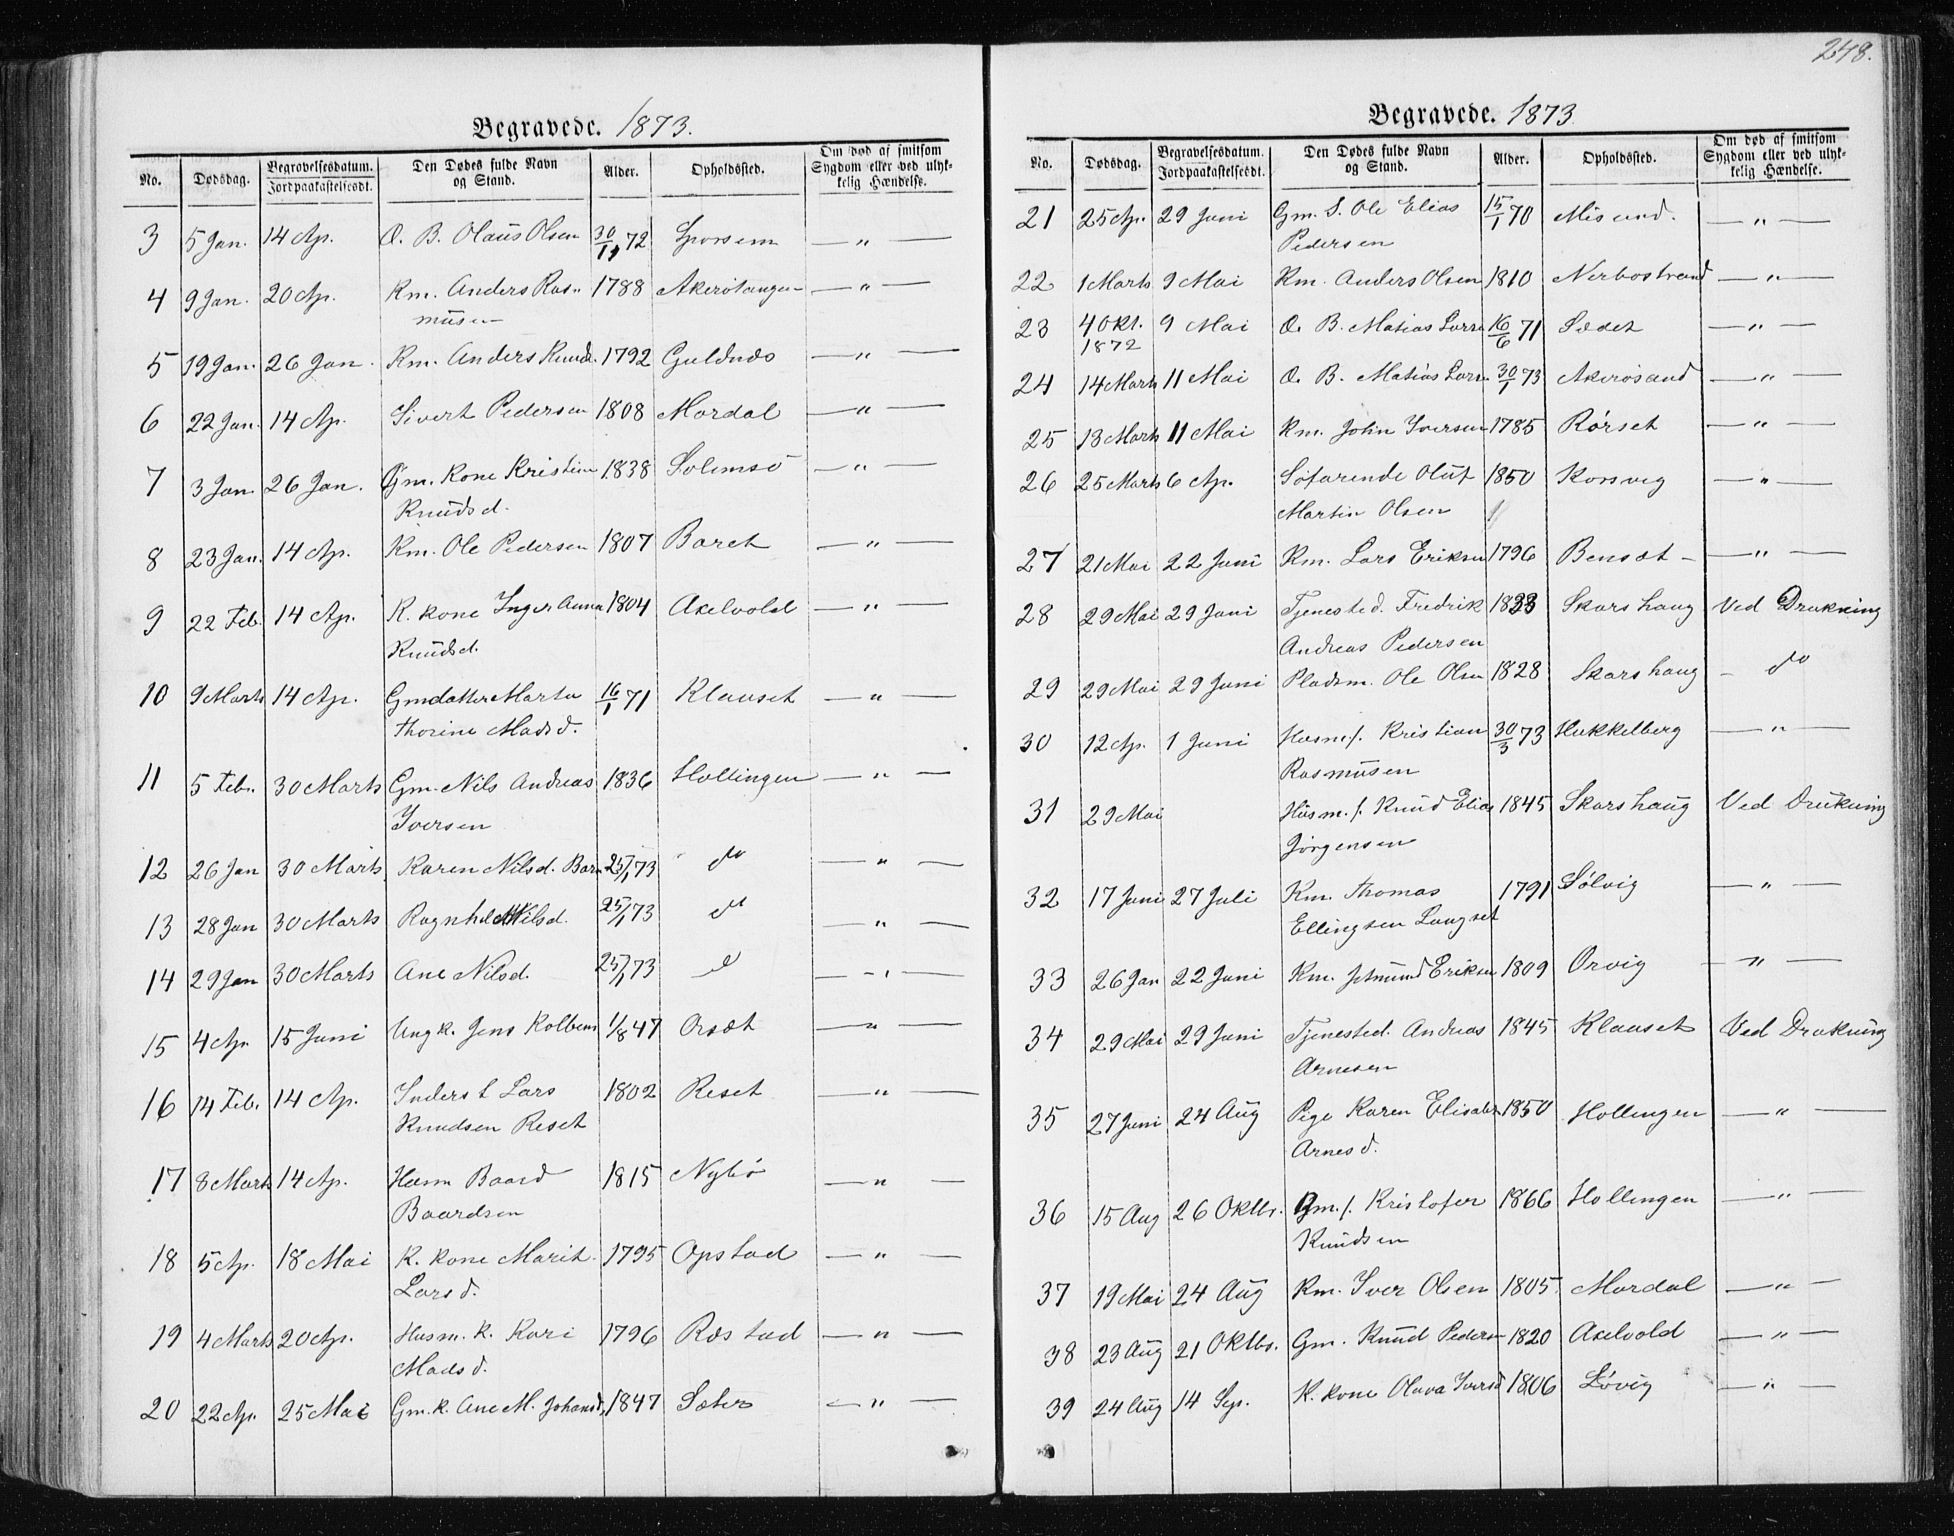 248.
Begravede. 1873.
No. Dødsdag. Begravelsesdatum. Jordpaakastelsesdt. Den Dødes fulde Navn og Stand. Alder. Opholdssted. Om død af smitsom Sygdom eller ved ulykkelig Hændelse.
3 5 Jan. 14 Ap. O. B. Olaus Olsen 30/1 72 — „ —
4 9 Jan. 20 Ap. Km. Anders Ras- 1788 — „ —
musen
5 19 Jan. 26 Jan. Km. Anders Knuds. 1792 Guldnæs — „ —
6 22 Jan. 14 Ap. Sivert Pedersen 1808 Mordal — „ —
7 3 Jan. 26 Jan. Gm. Kone Kristine 1838 Solemsö — „ —
Knudsd.
8 23 Jan. 14 Ap. Km. Ole Pedersen 1807 Baret — „ —
9 22 Feb. 14 Ap. K. kone Inger Anna 1804 Axelvold — „ —
Knudsd.
10 9 Marts 14 Ap. Gmdatter Marta 16/1 71 Klauset — „ —
Thorine Madsd.
11 5 Feb. 30 Marts Gm. Nils Andreas 1836 Hollingen — „ —
Iversen
12 26 Jan 30 Marts Karen Nilsd. Barn 25/1 73 do — „ —
13 28 Jan 30 Marts Ragnhild Nilsd. 25/1 73 do — „ —
14 29 Jan 30 Marts Ane Nilsd. 25/1 73 do — „ —
15 4 Ap. 15 Juni Ungk. Jens Kolbens 1/8 47 Orsæt — „ —
16 14 Feb. 14 Ap. Inderst Lars 1802 Reset — „ —
Knudsen Reset
17 8 Marts 14 Ap. Husm Baard 1815 Nybö — „ —
Baardsen
18 5 Ap. 18 Mai K. kone Marit 1795 Opstad — „ —
Larsd.
19 4 Marts 20 Ap. Husm. k. Kari 1796 Røstad — „ —
Madsd.
20 22 Ap. 25 Mai Gm. k. Ane M. Johansd. 1847 Sæter — „ —
Begravede. 1873
No. Dødsdag. Begravelsesdatum. Jordpaakastelsesdt. Den Dødes fulde Navn og Stand. Alder. Opholdssted. Om død af smitsom Sygdom eller ved ulykkelig Hændelse.
21 25 Ap. 29 Juni Gm. S. Ole Elias 15/1 70 Misund. — „ —
Pedersen
22 1 Marts 9 Mai Km. Anders Olsen 1810 Nerbostrand — „ —
23 4 Okt. 9 Mai O. B. Matias Larse 16/6 71 Sædet — „ —
1872
24 14 Marts 11 Mai O. B. Matias Larse 30/1 73 Akerøsand — „ —
25 13 Marts 11 Mai Km. John Iversen 1785 Rørset — „ —
26 25 Marts 6 Ap. Söfarende Oluf 1850 Korsvig — „ —
Martin Olsen
27 21 Mai 22 Juni Km. Lars Eriksen 1796 Bensæt — „ —
28 29 Mai 29 Juni Tjenested. Fredrik Skarshaug Ved Drukning
Andreas Pedersen
29 29 Mai 29 Juni Pladsm. Ole Olsen 1828 Skarshaug - do
30 12 Ap. 1 Juni Husm. f. Kristian 30/3 73 Hukkelberg — „ —
Rasmusen
31 29 Mai Husm. f. Knud Elias 1845 Skarshaug Ved Drukning
Jörgensen
32 17 Juni 27 Juli Km. Thomas 1791 Sølvig — „ —
Ellingsen Langset
33 26 Jan 22 Juni Km. Eriksen 1809 Orvig — „ —
34 29 Mai 29 Juni Tjenested. Andreas 1845 Klauset Ved Drukning
Arnesen
35 27 Juni 24 Aug Pige Karen Elisabet 1850 Hollingen — „ —
Arnesd.
36 15 Aug 26 Oktbr. Gm. f. Kristofer 1866 Hollingen — „ —
Knudsen
37 19 Mai 24 Aug Km. Iver Olsen 1805 Mordal — „ —
38 23 Aug 21 Oktbr. Gm. Knud Pedersen 1820 Axelvold — „ —
39 24 Aug 14 Sep. K. kone Olava Iversd 1806 Løvig — „ —